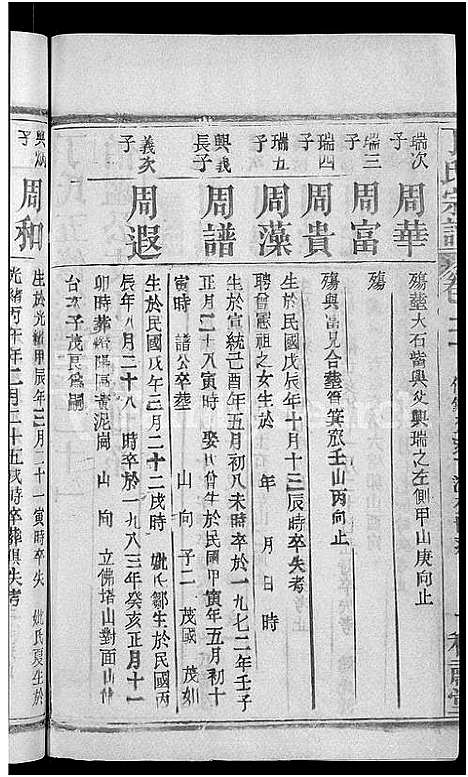 瑞次子 周華 殤塟大石觜興父興瑞之左側甲山庚向止
瑞三子 周富 殤
瑞四子 周貴 殤與富兄合塟箕窊壬山丙向止
瑞五子 周藻 生於民國戊辰年十月十三辰時卒失考
聘曾憲祖之女生於 年 月 日 時
興義長子 周譜 生於宣統己酉年五月初八未時卒於一九七二年壬子
正月二十八寅時 娶 氏 生於民國甲寅年五月初十
寅時 譜公卒塟 山 向 子二 茂國 茂如
義次子 周遐 生於民國戊午年三月二十二戌時 妣氏鄒生於民國丙
辰年八月二十八 時卒於一九八三年癸亥正月十一
卯時葬 陽區黃泥崗 山 向 立佛塔山對面山
台 次子茂良為嗣
興 子 周和 生於光緒甲辰年三月二十一寅時卒失 妣氏夏生於
光緒丙午年二月二十五戌時卒葬俱失考